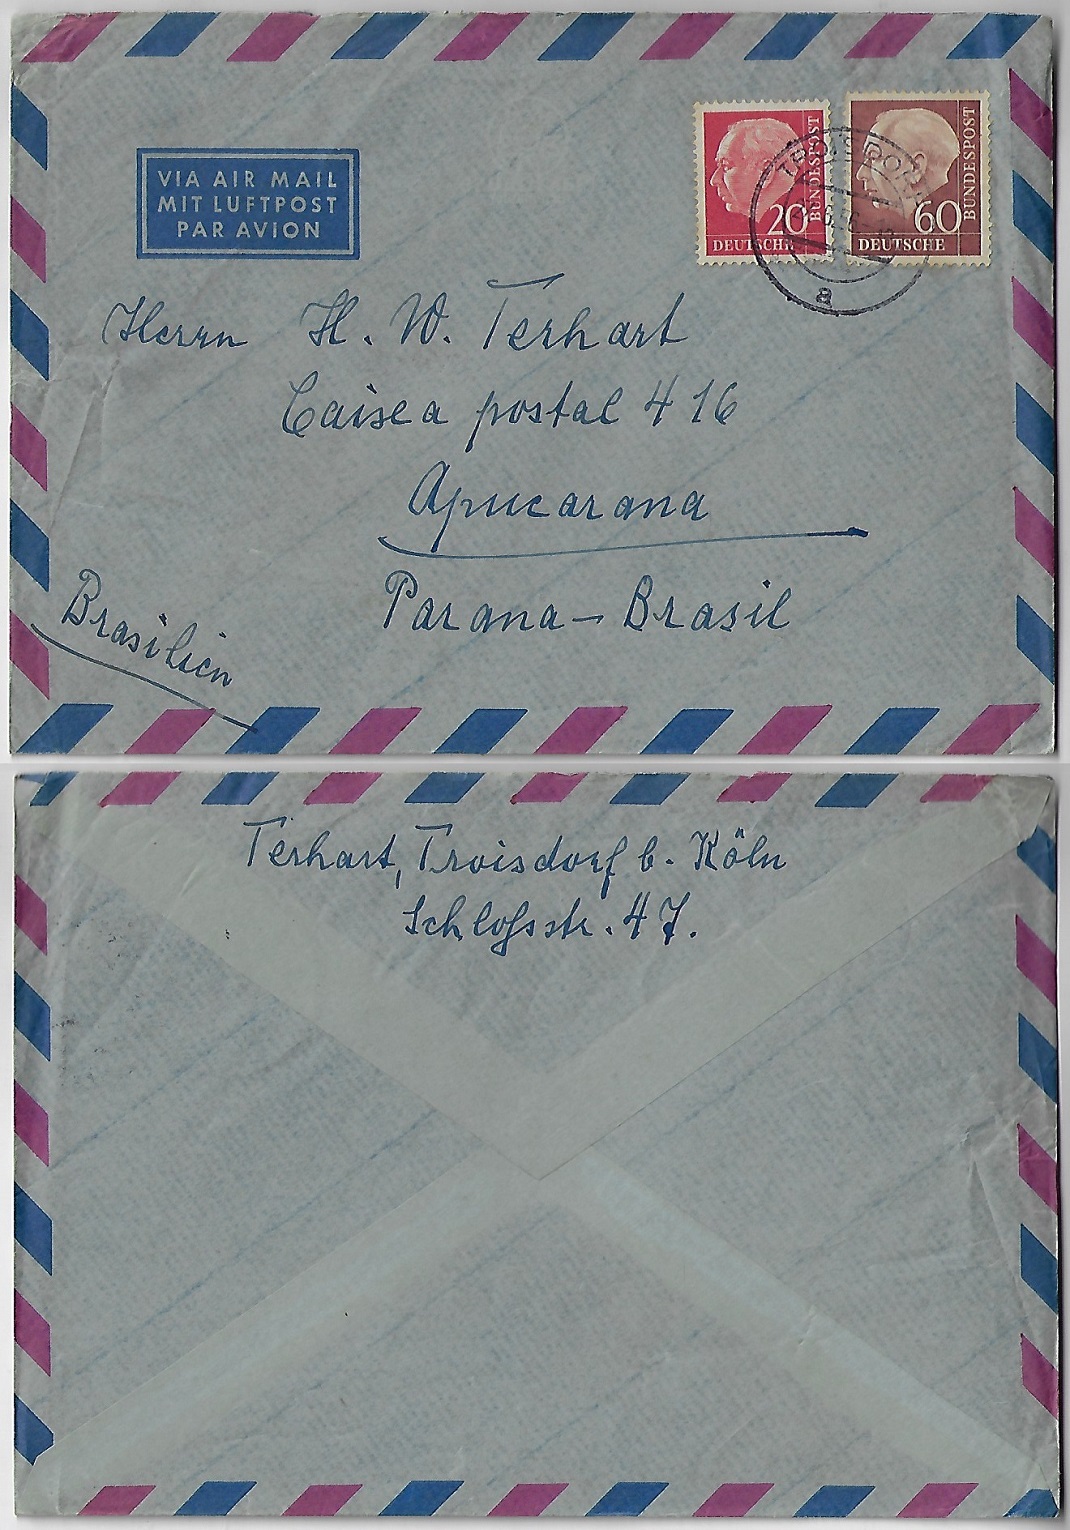 VIA AIR MAIL
MIT LUFTPOST
PAR AVION
20
DEUTSCHE
BUNDESPOST
60
DEUTSCHE
BUNDESPOST
TROISDORF
a
Herrn H. W. Terhart
Caisea postal 416
Apucarana
Parana - Brasil
Brasilien
Terhart, Troisdorf b. Köln
Schloßstr. 47.